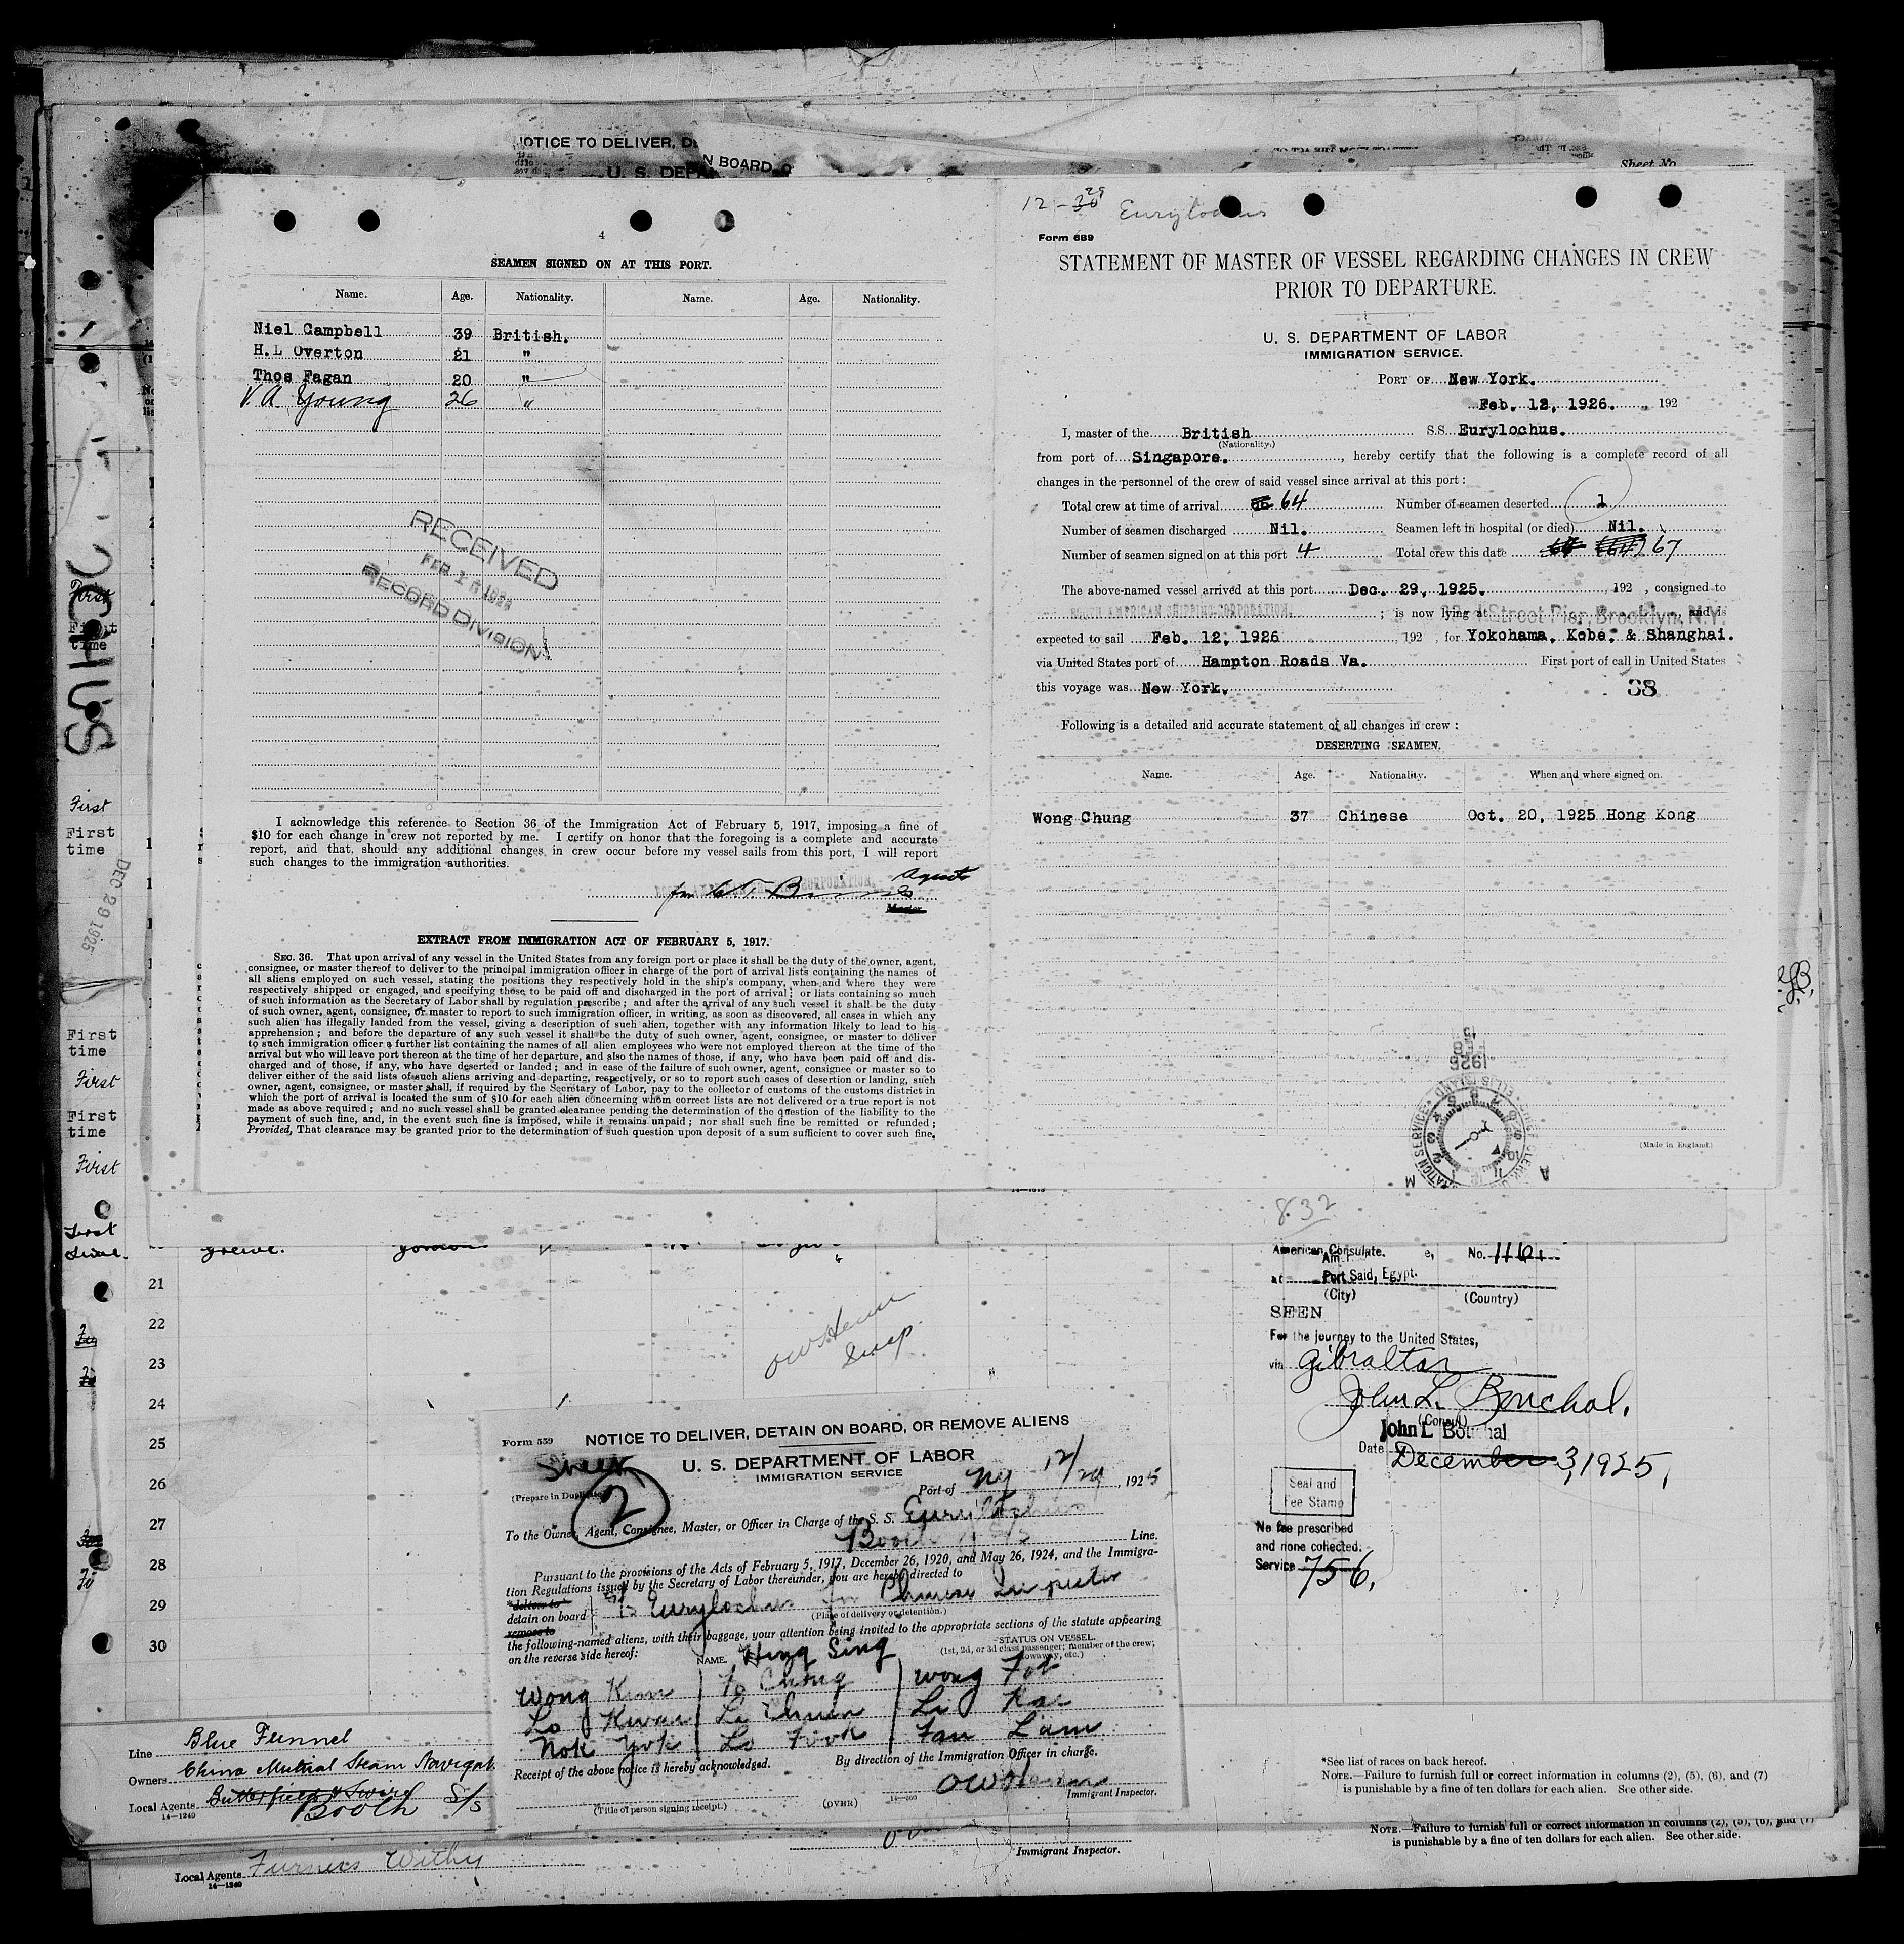 NOTICE TO DELIVER, DE
N BOARD, O
U. S. DEPA
Sheet No.
4
SEAMEN SIGNED ON AT THIS PORT.
Name. Age. Nationality. Name. Age. Nationality.
Niel Campbell 39 British.
H.L Overton 21 "
Thos Fagan 20 "
V. A. Young 26 "
RECEIVED
FEB 1 1926
RECORD DIVISION
I acknowledge this reference to Section 36 of the Immigration Act of February 5, 1917, imposing a fine of
$10 for each change in crew not reported by me. I certify on honor that the foregoing is a complete and accurate
report, and that, should any additional changes in crew occur before my vessel sails from this port, I will report
such changes to the immigration authorities.
Agents
Master.
EXTRACT FROM IMMIGRATION ACT OF FEBRUARY 5, 1917.
SEC. 36. That upon arrival of any vessel in the United States from any foreign port or place it shall be the duty of the owner, agent,
consignee, or master thereof to deliver to the principal immigration officer in charge of the port of arrival lists containing the names of
all aliens employed on such vessel, stating the positions they respectively hold in the ship's company, when and where they were
respectively shipped or engaged, and specifying those to be paid off and discharged in the port of arrival; or lists containing so much
of such information as the Secretary of Labor shall by regulation prescribe; and after the arrival of any such vessel it shall be the duty
of such owner, agent, consignee, or master to report to such immigration officer, in writing, as soon as discovered, all cases in which any
such alien has illegally landed from the vessel, giving a description of such alien, together with any information likely to lead to his
apprehension; and before the departure of any such vessel it shall be the duty of such owner, agent, consignee, or master to deliver
to such immigration officer a further list containing the names of all alien employees who were not employed thereon at the time of the
arrival but who will leave port thereon at the time of her departure, and also the names of those, if any, who have been paid off and dis-
charged and of those, if any, who have deserted or landed; and in case of the failure of such owner, agent, consignee or master so to
deliver either of the said lists of such aliens arriving and departing, respectively, or so to report such cases of desertion or landing, such
owner, agent, consignee, or master shall, if required by the Secretary of Labor, pay to the collector of customs of the customs district in
which the port of arrival is located the sum of $10 for each alien concerning whom correct lists are not delivered or a true report is not
made as above required; and no such vessel shall be granted clearance pending the determination of the question of the liability to the
payment of such fine, and, in the event such fine is imposed, while it remains unpaid; nor shall such fine be remitted or refunded;
Provided, That clearance may be granted prior to the determination of such question upon deposit of a sum sufficient to cover such fine.
12-29 Eurylochus
Form 689
STATEMENT OF MASTER OF VESSEL REGARDING CHANGES IN CREW
PRIOR TO DEPARTURE.
U. S. DEPARTMENT OF LABOR
IMMIGRATION SERVICE.
PORT OF New York.
Feb. 12, 1926. , 192
I, master of the British S.S. Eurylochus.
(Nationality.)
from port of Singapore. , hereby certify that the following is a complete record of all
changes in the personnel of the crew of said vessel since arrival at this port:
Total crew at time of arrival 64 Number of seamen deserted 1
Number of seamen discharged Nil. Seamen left in hospital (or died) Nil.
Number of seamen signed on at this port 4 Total crew this date 67
The above-named vessel arrived at this port Dec. 29, 1925. , 192 , consigned to
BOOTH AMERICAN SHIPPING CORPORATION. ; is now lying at Street Pier, Brooklyn, N.Y. and is
expected to sail Feb. 12, 1926 , 192 , for Yokohama, Kobe, & Shanghai.
via United States port of Hampton Roads Va. First port of call in United States
this voyage was New York. 38
Following is a detailed and accurate statement of all changes in crew:
DESERTING SEAMEN.
Name. Age. Nationality. When and where signed on.
Wong Chung 37 Chinese Oct. 20, 1925 Hong Kong
1926
FEB
15
(Made in England)
First
First
time
First
First
time
DEC 29 1925
First
time
First
First
time
First
832
21
22
23
24
25
26
27
28
29
30
American Consulate. No. 1161
at Port Said, Egypt.
(City) (Country)
SEEN
For the journey to the United States,
via Gibraltar
John L. Bouchal.
(Consul)
John L Bouchal
Date December 3, 1925,
Seal and
Fee Stamp
No fee prescribed
and none collected.
Service 756,
Form 559
NOTICE TO DELIVER, DETAIN ON BOARD, OR REMOVE ALIENS
Sheet
2
U. S. DEPARTMENT OF LABOR
IMMIGRATION SERVICE
(Prepare in Duplicate)
Port of NY 12/29, 1925
To the Owner, Agent, Consignee, Master, or Officer in Charge of the S. S. Eurylochus
Booth S/S Line.
Pursuant to the provisions of the Acts of February 5, 1917, December 26, 1920, and May 26, 1924, and the Immigra-
tion Regulations issued by the Secretary of Labor thereunder, you are hereby directed to
*deliver to
detain on board SS Eurylochus for Chinese Inspector
remove to
(Place of delivery or detention.)
the following-named aliens, with their baggage, your attention being invited to the appropriate sections of the statute appearing
on the reverse side hereof:
NAME. Hing Sing
STATUS ON VESSEL
(1st, 2d, or 3d class passenger; member of the crew;
stowaway, etc.)
Wong Kun Yo Chong Wong Fot
Lo Kwai La Chuen Li Kai
Nok Yok Lo Fook Fan Lam
Receipt of the above notice is hereby acknowledged. By direction of the Immigration Officer in charge.
(Title of person signing receipt.) (OVER) 14-660 Immigrant Inspector.
Line Blue Funnel
Owners China Mutual Steam Navigat
Local Agents Butterfield & Swire
Booth S/S
14-1240
*See list of races on back hereof.
NOTE.—Failure to furnish full or correct information in columns (2), (5), (6), and (7)
is punishable by a fine of ten dollars for each alien. See other side.
NOTE.—Failure to furnish full or correct information in columns (2), (5), (6), and (7)
is punishable by a fine of ten dollars for each alien. See other side.
Immigrant Inspector.
Local Agents Furness Withy
14-1240